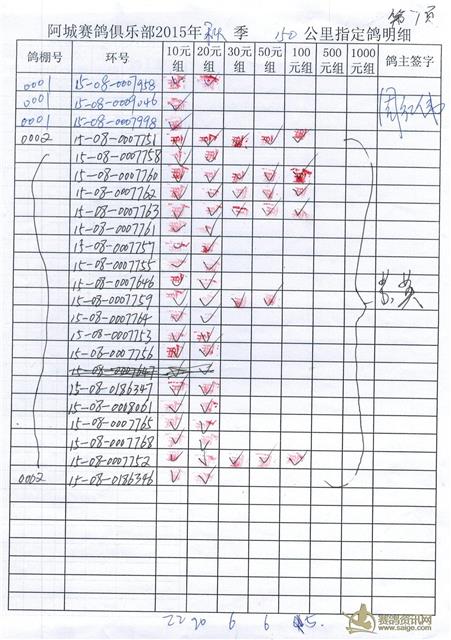 第1页
阿城赛鸽俱乐部2015年秋季 150公里指定鸽明细
鸽棚号 环号 10元组 20元组 30元组 50元组 100元组 500元组 1000元组 鸽主签字
0001 15-08-0007958 ✓ ✓
0001 15-08-0009046 ✓
0001 15-08-0007998 ✓
0002 15-08-0007751 ✓ ✓ ✓ ✓ ✓
15-08-0007758 ✓ ✓
15-08-0007760 ✓ ✓ ✓ ✓ ✓
15-08-0007762 ✓ ✓ ✓ ✓ ✓
15-08-0007763 ✓ ✓ ✓ ✓ ✓
15-08-0007761 ✓ ✓
15-08-0007757 ✓ ✓
15-08-0007755 ✓ ✓
15-08-0007646 ✓ ✓
15-08-0007759 ✓ ✓ ✓ ✓
15-08-0007764 ✓ ✓
15-08-0007753 ✓ ✓
15-08-0007756 ✓ ✓
15-08-0007647 ✓ ✓
15-08-0186347 ✓ ✓
15-08-0008061 ✓ ✓
15-08-0007765 ✓ ✓
15-08-0007768 ✓ ✓
15-08-0007752 ✓ ✓ ✓ ✓ ✓
0002 15-08-0186346 ✓ ✓
22 20 6 6 5
赛鸽资讯网
www.saige.com